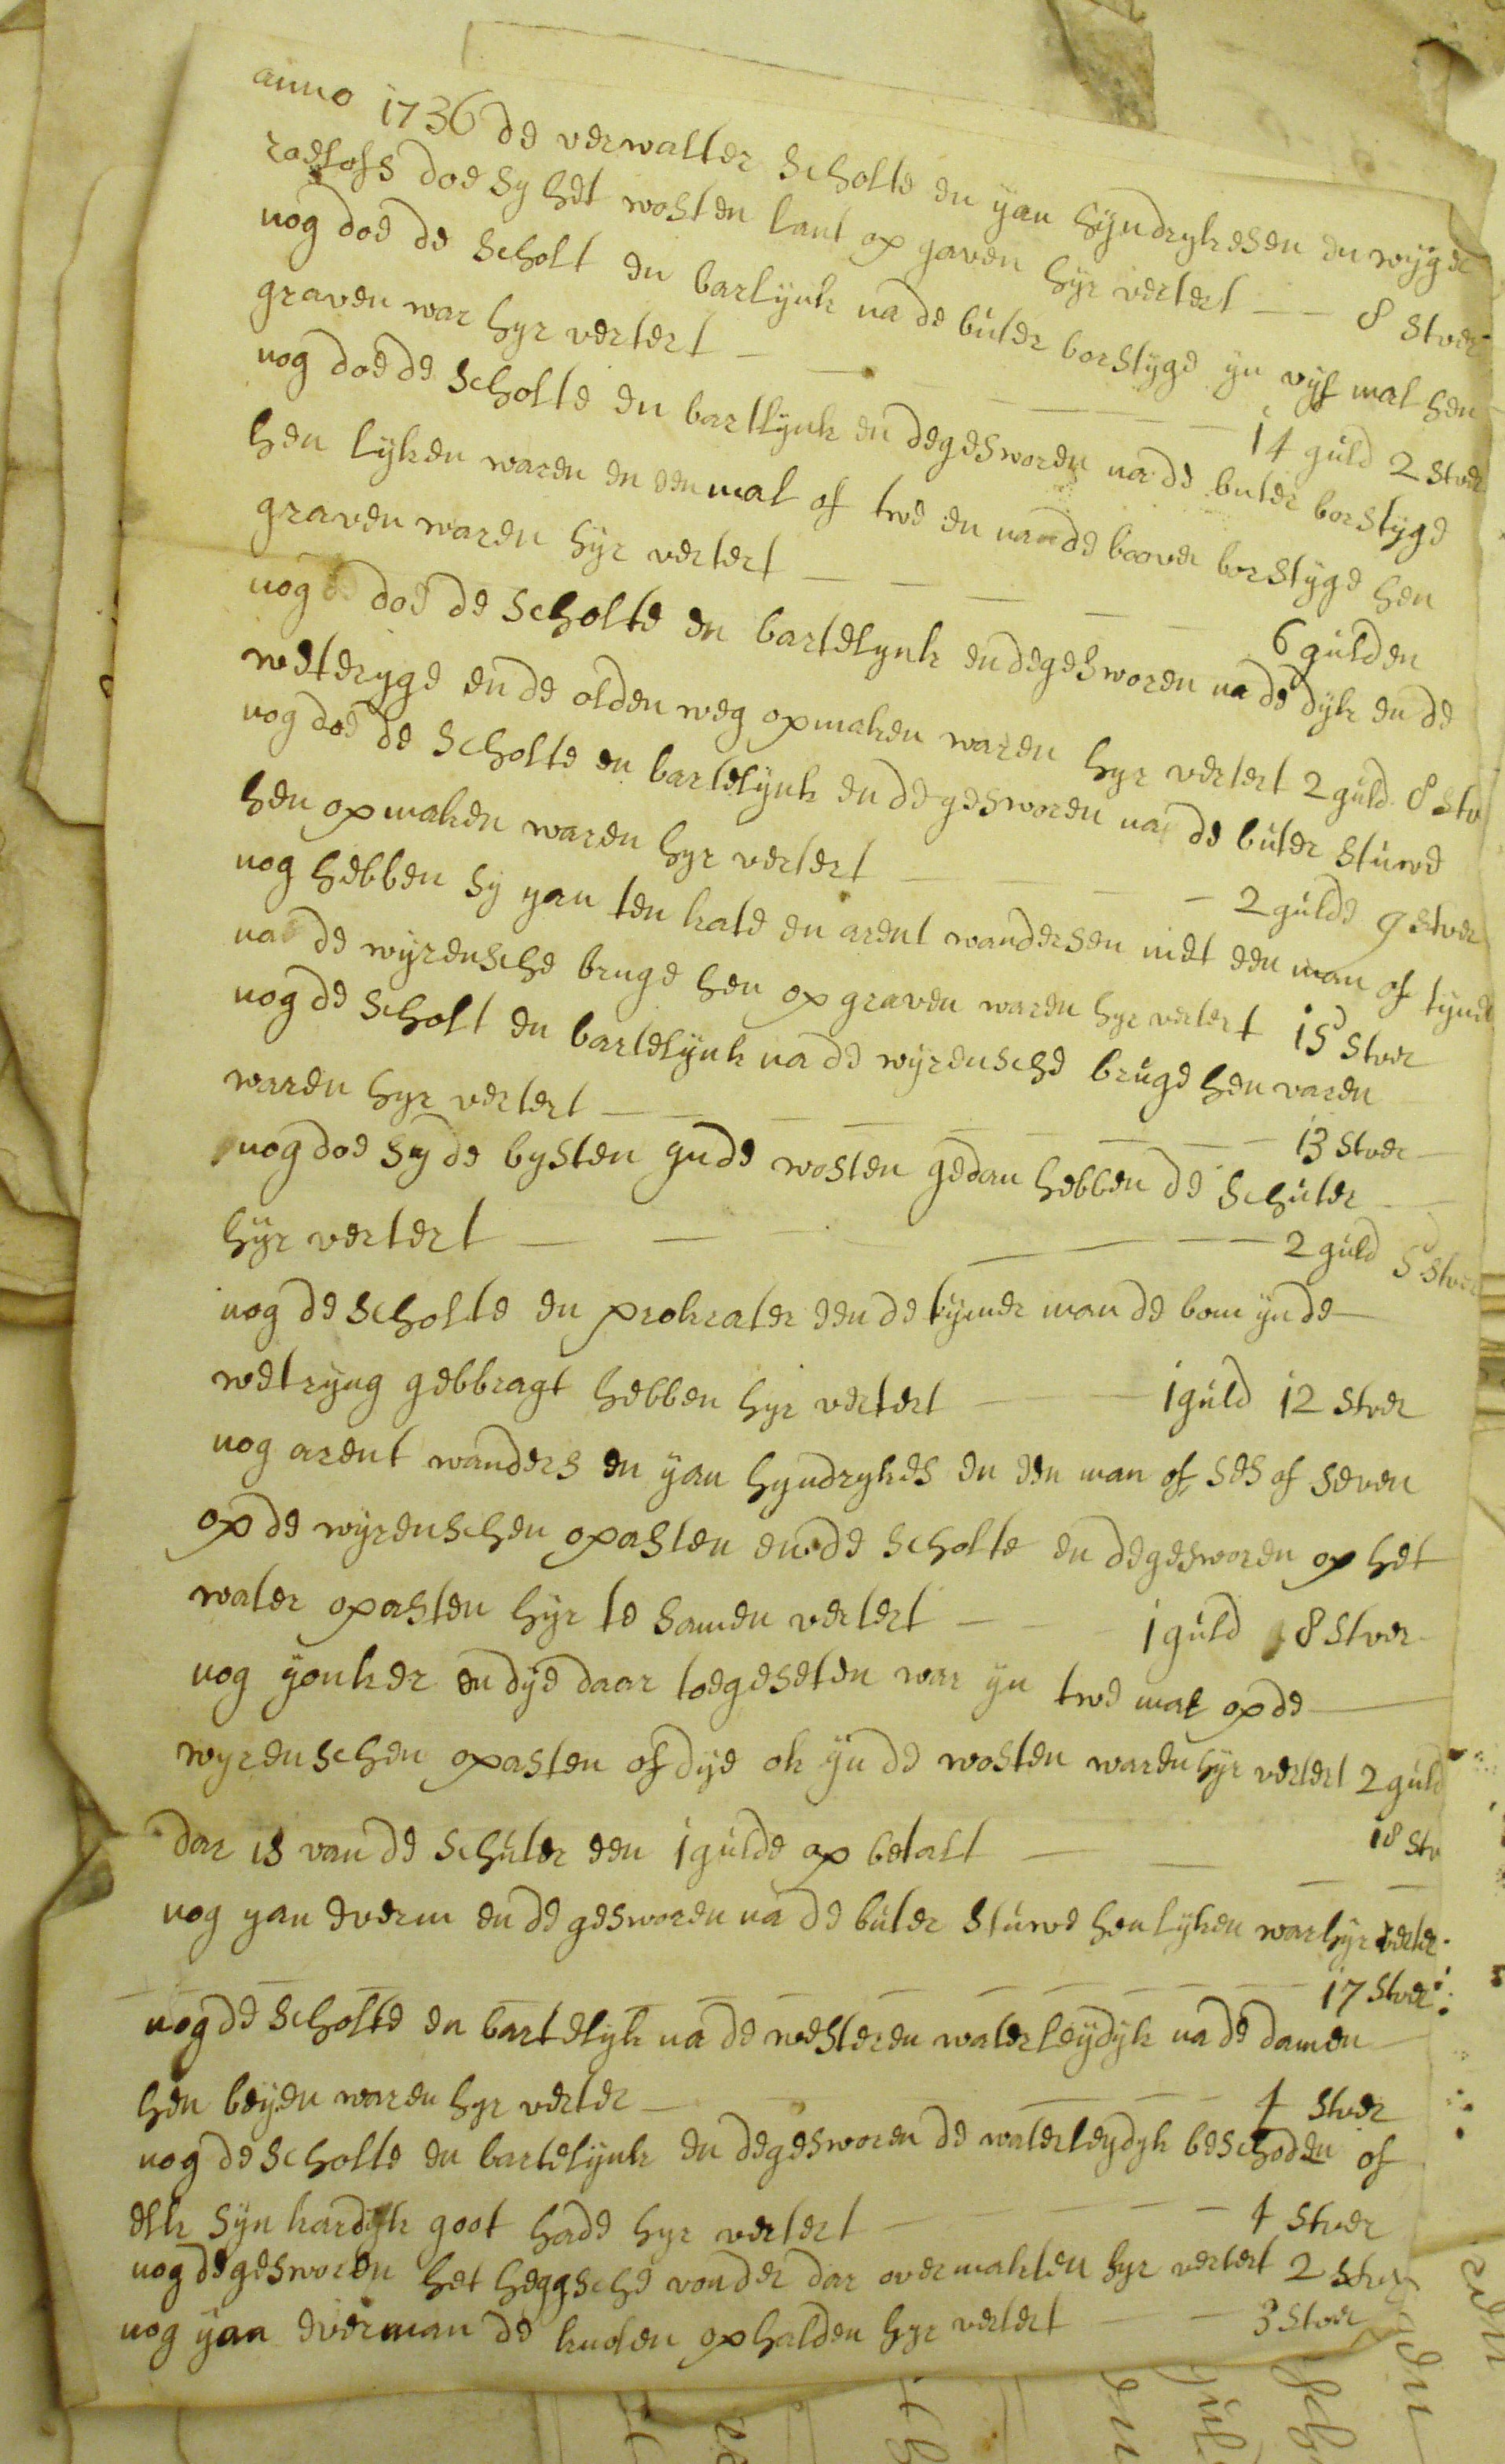 anno 1736 de verwalter scholte en yan hyndrykesen en wyger
roelofs doe sy het wosten lant op gaven hyr vertert 8 stver
nog doe de scholt en barlynk na de buter borstyge yn vyf mal hen
graven war hyr vertert 14 guld 2 stver
nog doe de scholte en bartlynk en degesworen na de buter borstyge
hen lyken waren en een mal of twe en na de boover borstyge hen
graven waren hyr vertert 6 gulden
nog doe de scholte en bartelynk en degesworen na de dyk en de
weteryge en de olden weg opmaken waren hyr vertert 2 guld 8 stv
nog doe de scholte en bartelynk en degesworen na de buter stuwe
hen opmaken waren hyr vertert 2 gulde 9 stver
nog hebben sy yan ten kate en arent wandersen met een man of tyne
na de wyrensche bruge hen op graven waren hyr vertert 15 stver
nog de scholt en bartelynk na de wyrensche bruge hen varen
waren hyr vertert 13 stver
nog doe sy de bysten ynde wosten gedan hebben de schuter
hyr vertert 2 guld 5 stver
nog de scholte en prokrater een de tymer man de bom ynde
wetryng gebbragt hebben hyr vertert 1 guld 12 stver
nog arent wanders en yan hyndrykes en een man of ses of seven
op de wyrenschen opasten en de scholte en degesworen op het
water opasten hyr te samen vertert 1 guld 8 stver
nog yonker en dye daar toegeseten war yn twe mal op de
wyrenschen opasten of dye ok yn de wosten waren hyr vertert 2 guld
18 stv
dar is van de schuter een 1 gulde op betalt
nog yan everm en de gesworen na de buter stuwe hen lyken war hyr verter
17 stver
nog de scholte en bartelyk na de westeren waterleydyk na de damen
hen beyen waren hyr verter 4 stver
nog de scholte en bartelynk en degesworen de waterleydyk beschoden of
elk syn kardyk goot hade hyr vertert 4 stver
nog degesworen het heggsche vonder dar over makten hyr vertert 2 stver
nog yan everman de kuolen ophalden hyr vertert 3 stver